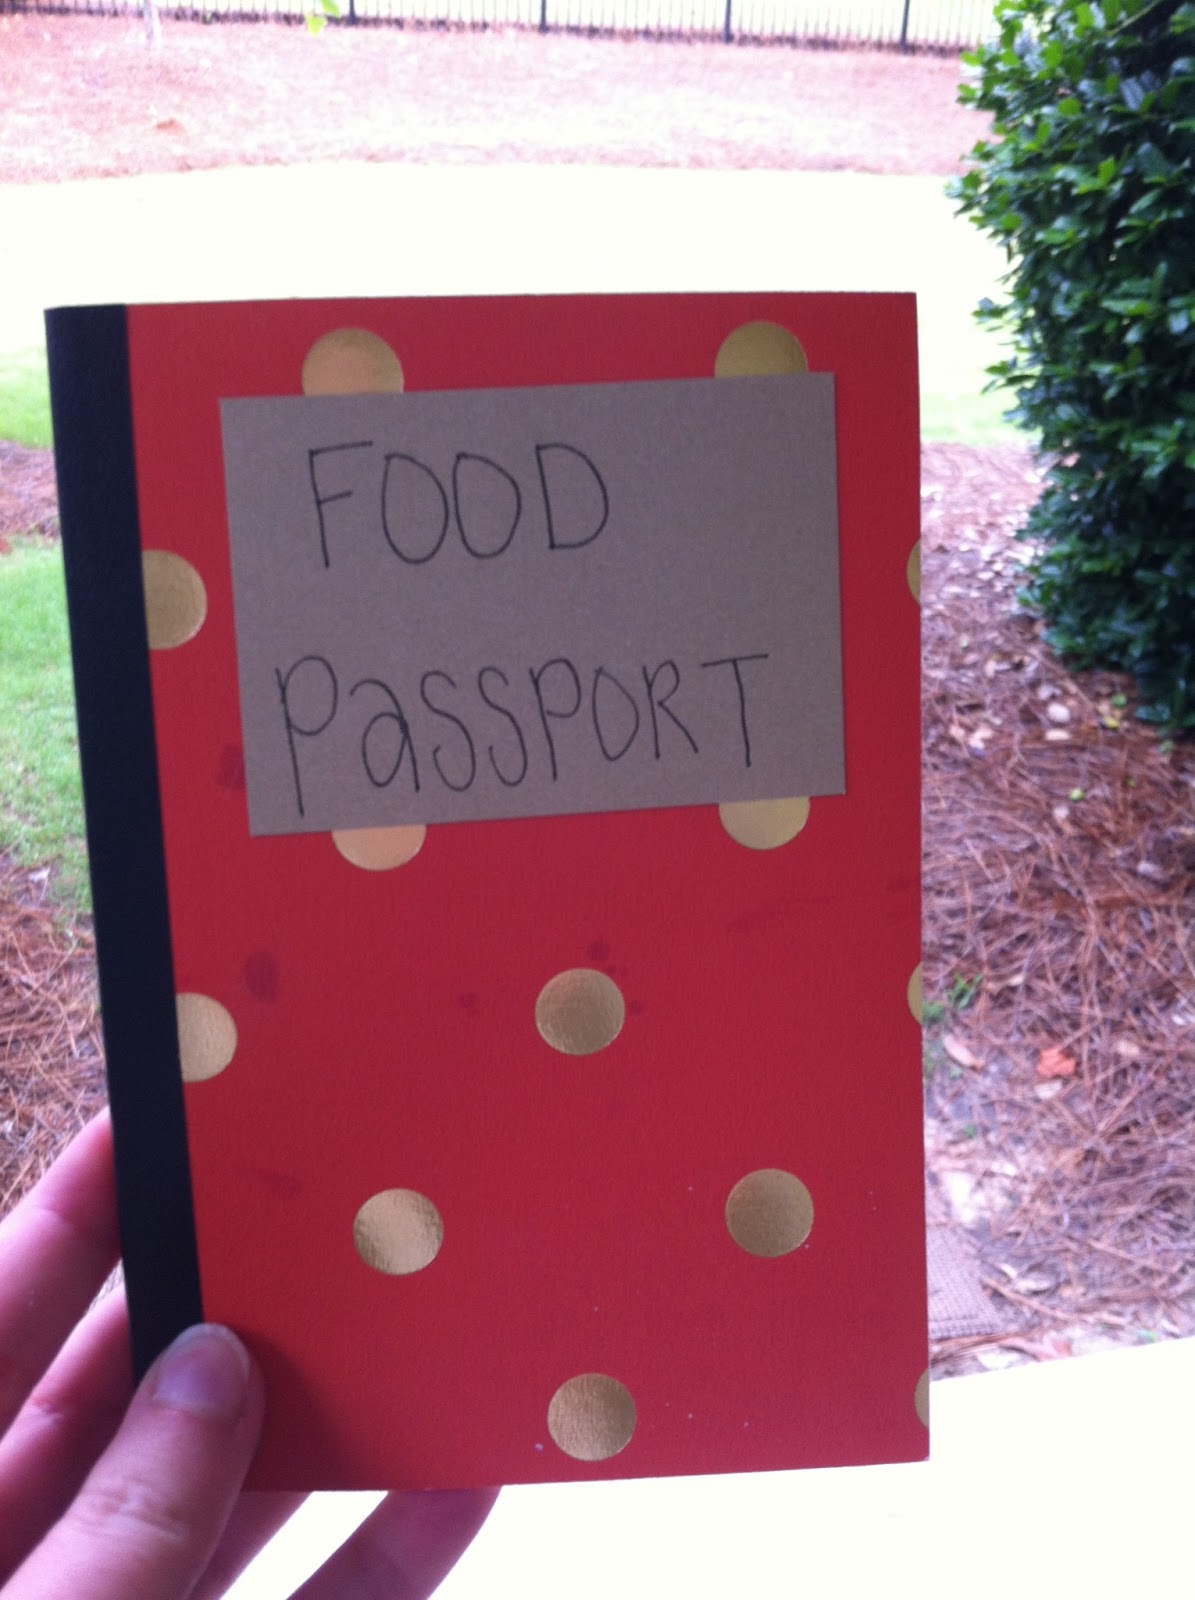 FOOD
PaSSPORT